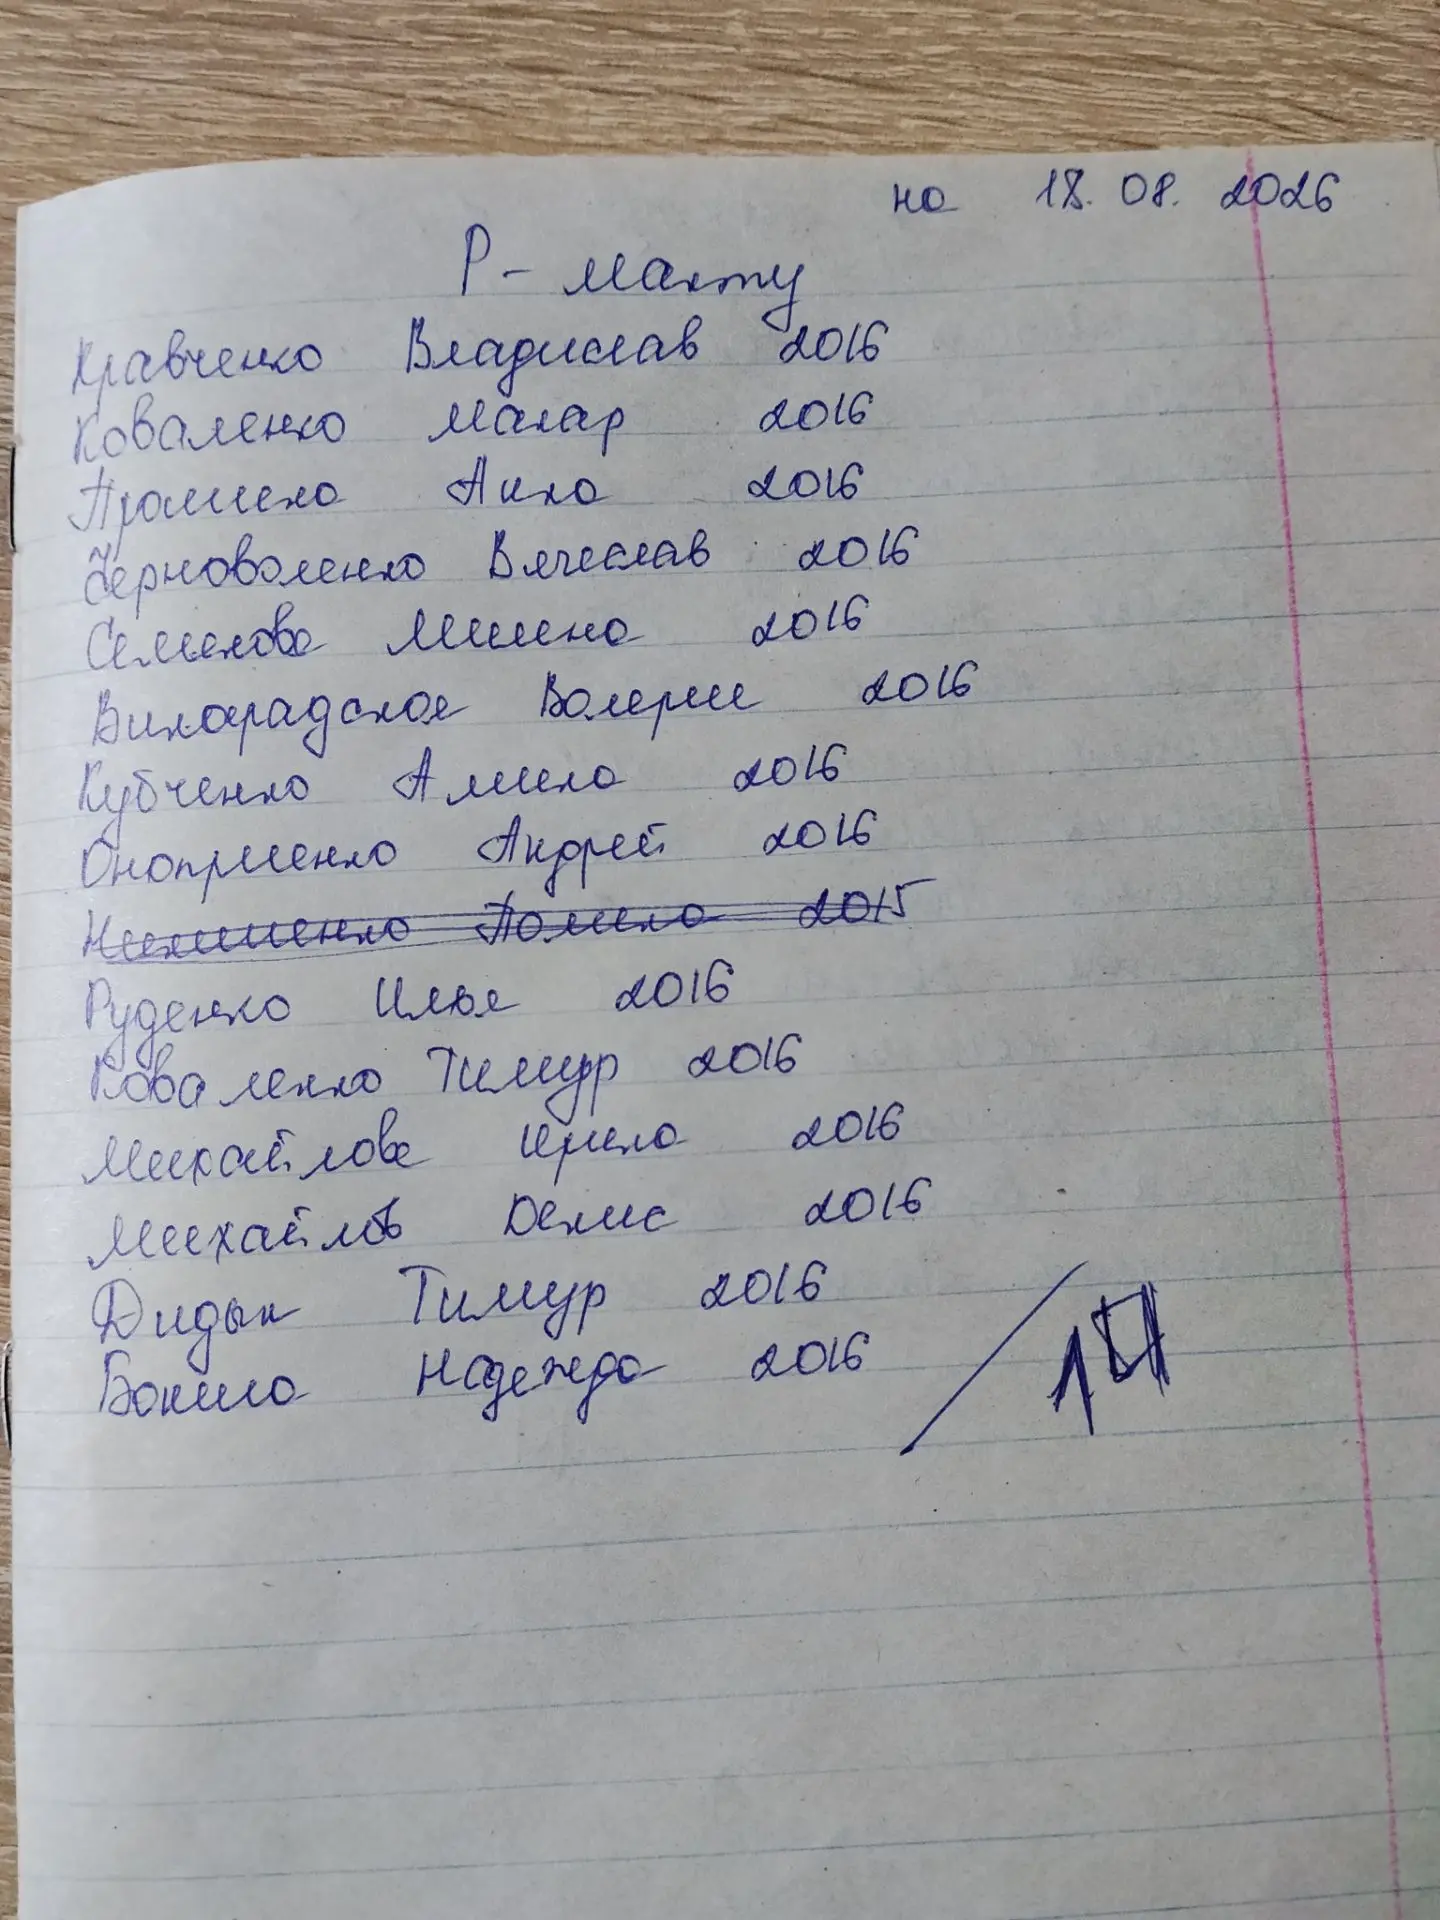 на 18. 08. 2026
Р - манту
Кравченко Владислав 2016
Коваленко Макар 2016
Анна 2016
Черноволенко Вячеслав 2016
Семенова Милена 2016
Виноградская Валерия 2016
Кубченко Амина 2016
Оноприенко Андрей 2016
Полина 2015
Руденко Илья 2016
Коваленко Тимур 2016
Михайлова Ирина 2016
Михайлов Денис 2016
Дидык Тимур 2016
Надежда 2016
14